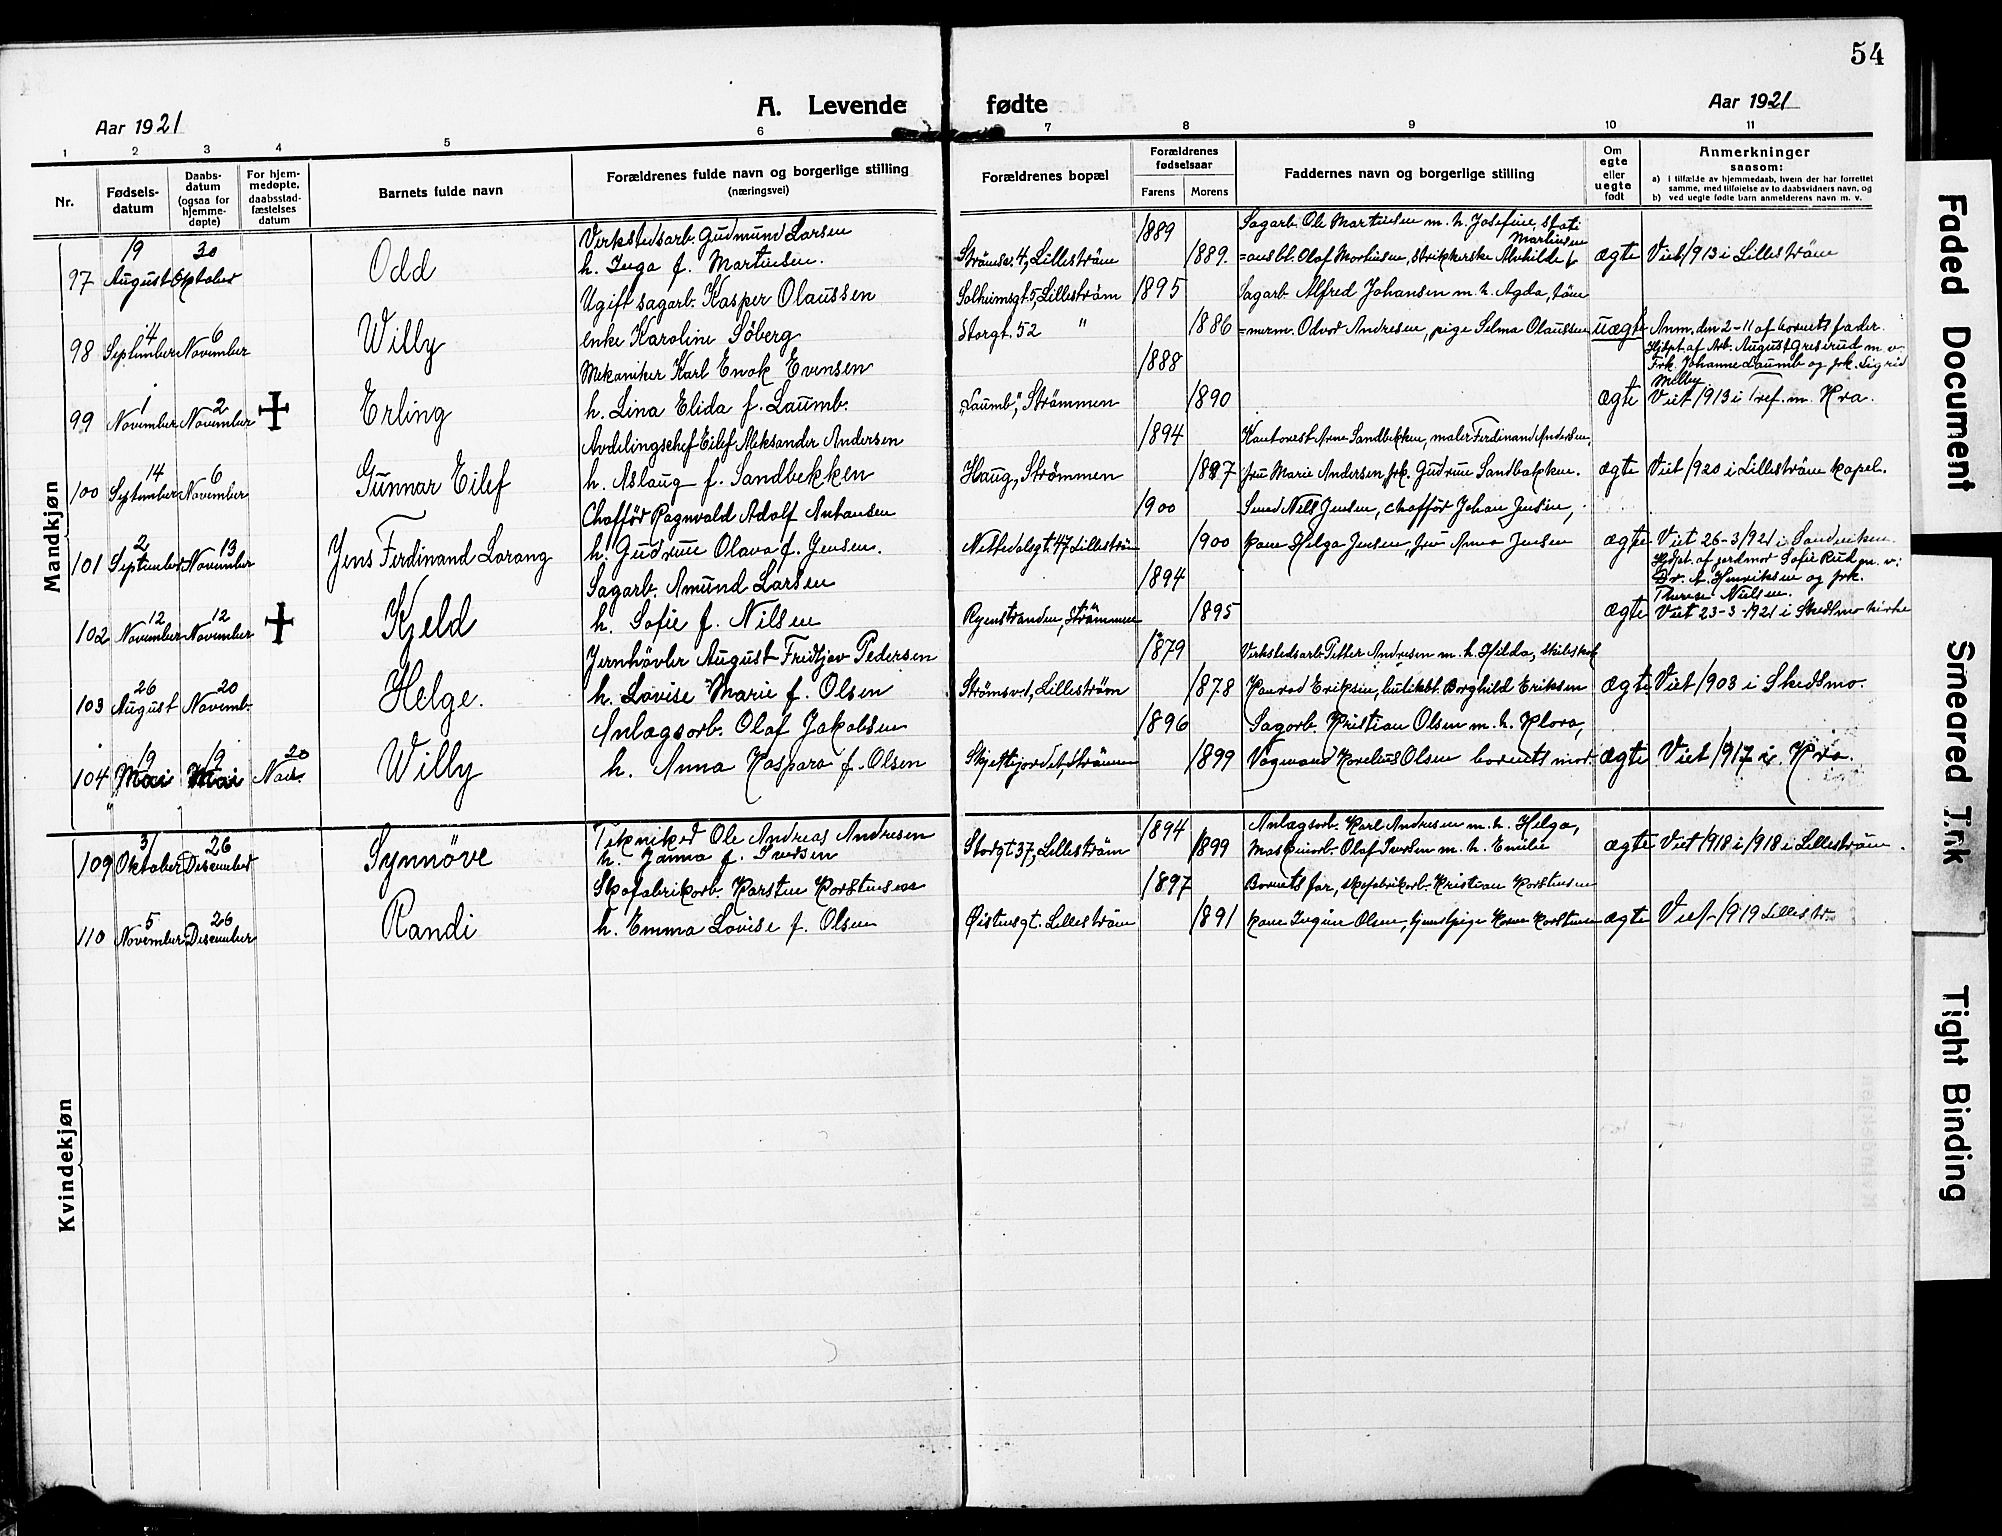 54
A. Levende fødte
Aar 1921
Aar 1921
1 2 3 4 5 6 7 8 9 10 11
Nr.
Fødsels-datum
Daabs-datum (ogsaa for hjemme-døpte)
For hjem-medøpte, daabsstad-fæstelses datum
Barnets fulde navn
Forældrenes fulde navn og borgerlige stilling (næringsvei)
Forældrenes bopæl
Forældrenes fødselsaar
Farens Morens
Faddernes navn og borgerlige stilling
Om egte eller uegte født
Anmerkninger
saasom:
a) I tilfælde av hjemmedaab, hvem der har forrettet samme, med tilføielse av to daabsvidners navn, og
b) ved uegte fødte barn anmelderens navn m. v.
Mandkjøn
97 19 August 30 Oktober Odd
Verkstedsarb. Gudmund Larsen
h. Inga f. Martinsen.
Strömsv. 4, Lilleström 1889 1889.
Sagarb. Ole Martinsen m. h. Josefine, stati
=onsbt. Olaf Mortinsen, strikkerske Alvhilde Martinsen
ægte Viet 1913 i Lilleström
98 4 September 6 November Willy
Ugift sagarb. Kasper Olaussen
enke Karoline Söberg
Solheimsgt. 5, Lilleström 1895
Storgt. 52 " 1886
Sagarb. Alfred Johansen m. h. Agda, töm
=merm. Odvar Andresen, pige Selma Olaussen
uægte Anm. den 2-11 af barnets fader.
99 1 November 2 November Erling
Mekaniker Karl Enok Evensen
h. Lina Elida f. Laumb.
"Laumb", Strömmen 1888 1890
Hjdpt. af Arb. August Greserud m. v.
Frk. Johanne Laumb og frk. Sigrid
Melby.
ægte Viet 1913 i Tref. m. Kra.
100 14 September 6 November Gunnar Eilef
Avdelingschef Eilef Aleksander Andersen
h. Aslaug f. Sandbekken
Haug, Strömmen 1894 1897
Kontorest Arne Sandbekken, maler Ferdinand Andersen,
fru Marie Andersen, frk. Gudrun Sandbakken.
ægte Viet 1920 i Lilleström kapel.
101 2 September 13 November Jens Ferdinand Lorang
Chafför Ragnvald Adolf Antonsen
h. Gudrun Olava f. Jensen.
Nittedalsgt. 47 Lilleström 1900 1900
Smed Nils Jensen, chafför Johan Jensen,
kone Helga Jensen, fru Anna Jensen
ægte Viet 26-3 1921 i Sandviken.
102 12 November 12 November Kjeld
Sagarb. Amund Larsen
h. Sofie f. Nilsen
Ryenstranden, Strömmen 1894 1895
Hjdpt. af jordmor Sofie Rud m. v:
Dr. A. Henriksen og frk.
Therese Nielsen.
ægte Viet 23-3-1921 i Skedsmo kirke
103 26 August 20 Novemb. Helge.
Jernhövler August Fridtjov Pedersen
h. Lovise Marie f. Olsen
Strömsvei, Lilleström 1879 1878
Verkstedsarb. Petter Andresen m. h. Hilda,
Konrad Eriksen, butikbt. Borghild Eriksen
ægte Viet 1903 i Skedsmo.
104 19 Mai 19 Mai 20 Nov. Willy
Anlægsarb. Olaf Jakobsen
h. Anna Kaspara f. Olsen
Skjettejordet, Strömm 1896 1899
Sagarb. Kristian Olsen m. h. Klara,
Vognmand Kornelius Olsen barnets mor
ægte Viet 1917 i Kra.
Kvindekjøn
109 31 Oktober 26 Desember Synnöve
Tekniker Ole Andreas Andresen
h. Janna f. Iversen
Storgt 37, Lilleström 1894 1899
Anlægsarb. Karl Andresen m. h. Helga,
Maskinarb. Olaf Iversen m. h. Emilie
ægte Viet 1918 i 1918 i Lilleström.
110 5 November 26 Desember Randi
Skofabrikarb. Karsten Korstensen
h. Emma Lovise f. Olsen
Øistensgt. Lilleström 1897 1891
Barnets far, skofabrikarb. Kristian Korstensen
kone Ingine Olsen, hjemsspige Korstensen
ægte Viet 1919 Lillestr.
Faded Document
Smeared Ink
Tight Binding